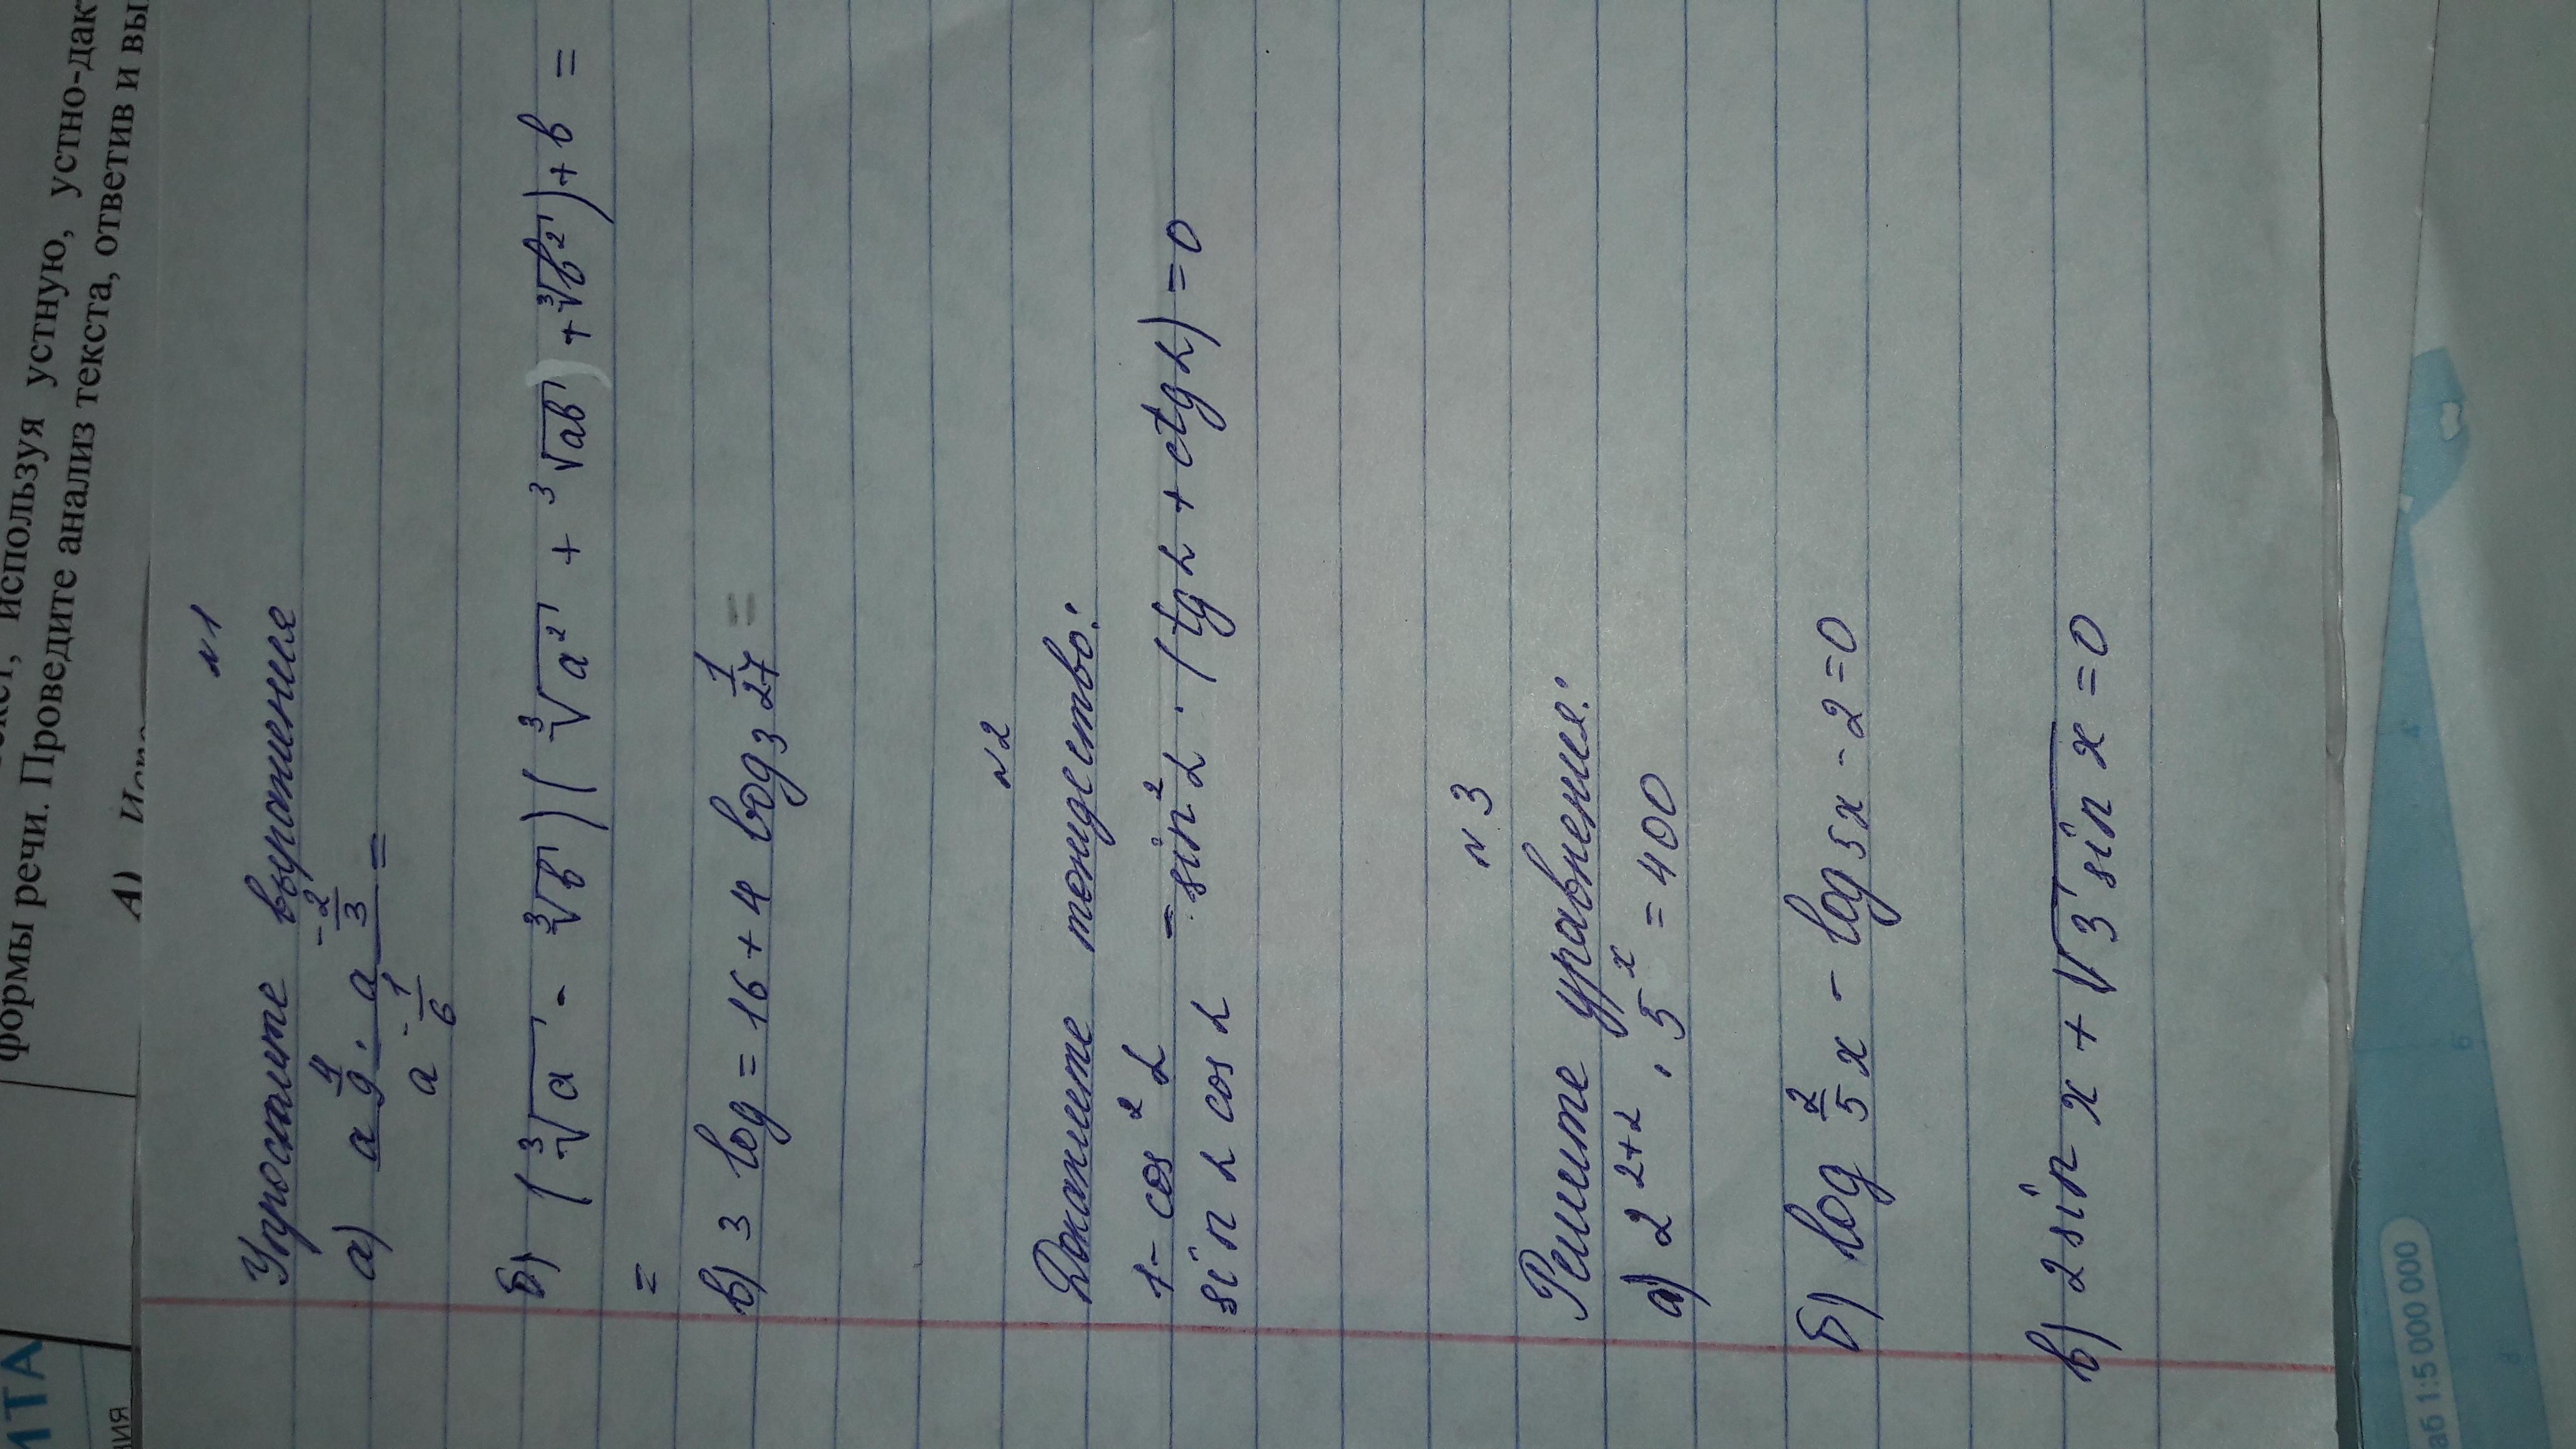 формы речи. Проведите анализ текста, ответив и вы
используя устную, устно-дак
А)
ИТА
ция
№1
Упростите выражения
а) (a^(4/9) · a^(-2/3)) / a^(-1/6) =
б) (∛a - ∛b)(∛a² + ∛ab) + ∛b²) + b =
=
в) 3 log = 16 + 4 log₃ 1/27 =
№2
Докажите тождество:
(1 - cos² α) / (sin α cos α) - sin² α · (tg α + ctg α) = 0
№3
Решите уравнения:
а) 2^(2+2) · 5^x = 400
б) log 2/5 x - log 5 x - 2 = 0
в) 2 sin x + √3 sin x = 0
аб 1:5 000 000